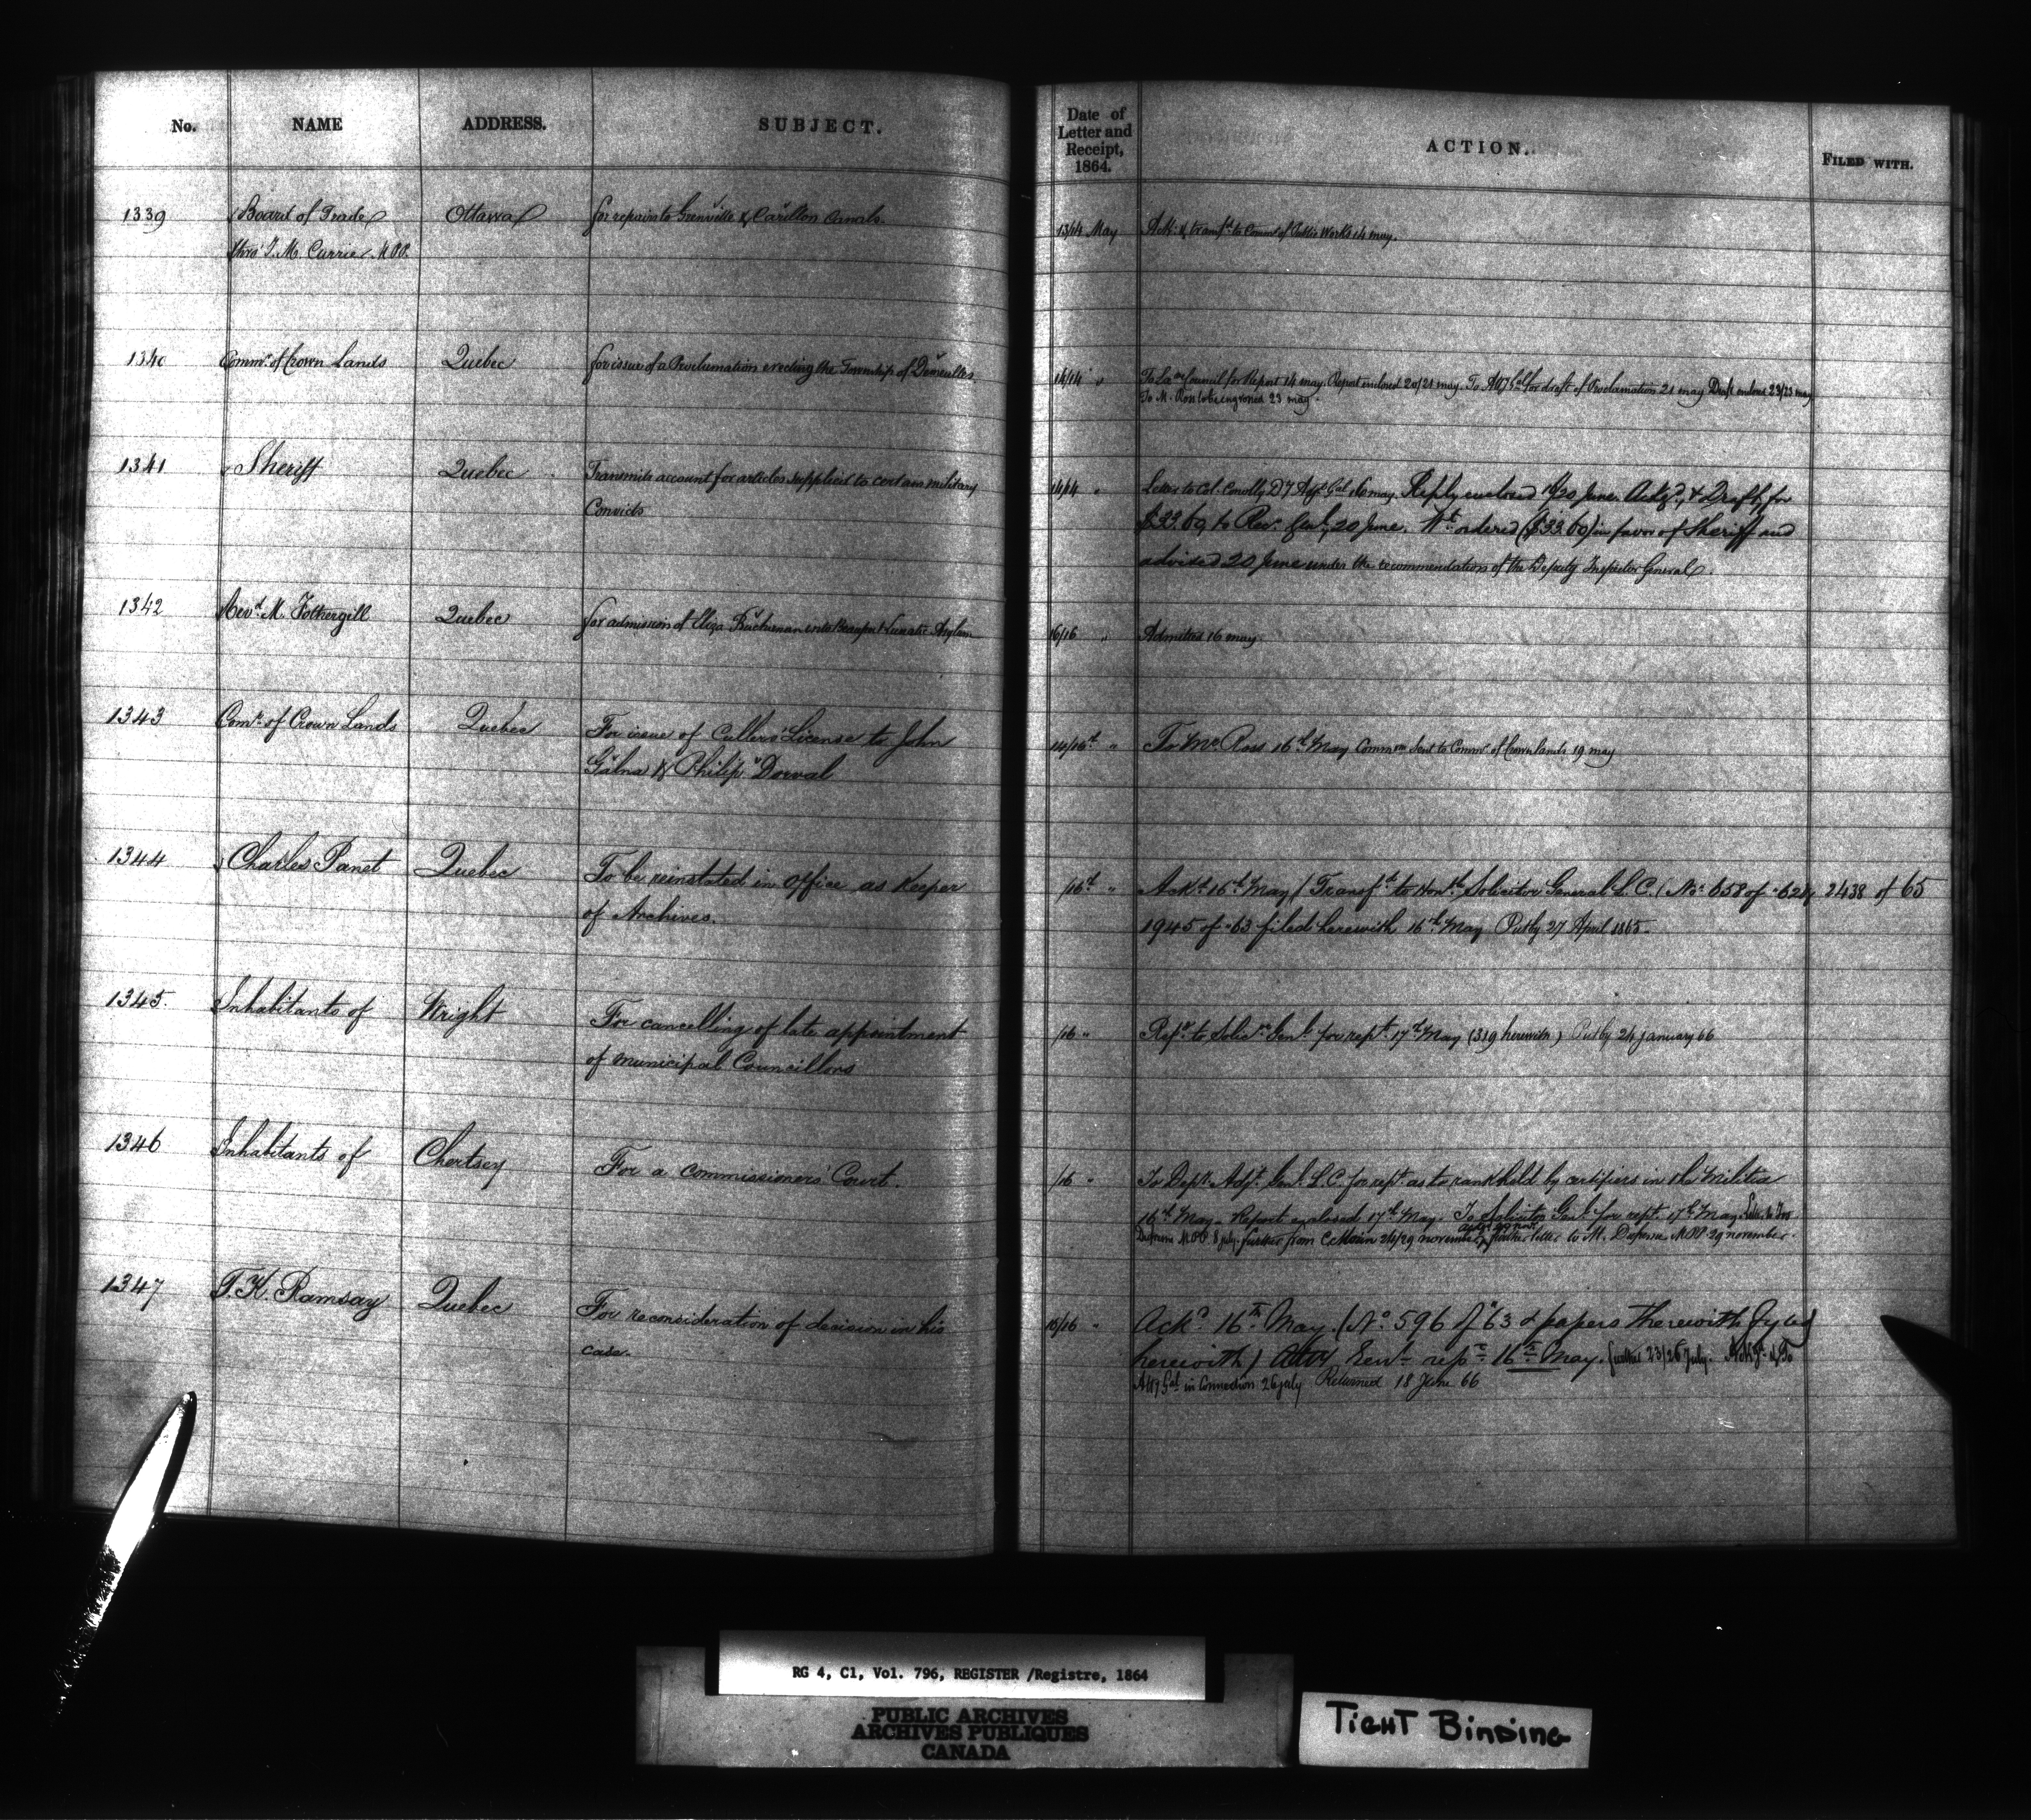 No. NAME ADDRESS. SUBJECT.
Date of Letter and Receipt, 1864. ACTION. FILED WITH.
1339 Board of Trade Ottawa for repairs to Grenville & Carillon Canals. 13/14 May Ackd & transfd to Commr of Public Works 14 may.
thro' J. M. Currier. M.P.P.
1340 Commr of Crown Lands Quebec for issue of a Proclamation erecting the Township of Demeulles 14/14 " To Ex Council for Report 14 may. Report enclosed 20/21 may. To Atty Gal for draft of Proclamation 21 may Draft enclosed 23/23 may
To M. Ross to be engrossed 23 may.
1341 Sheriff Quebec Transmits account for articles supplied to certain military 14/14 " Letter to Col. Conolly D Adjt Gal 16 may. Reply enclosed 18/20 June. Ackgd, & Draft, for
Convicts $33.60, to Recr Genl, 20 June. Wt ordered ($33.60) in favor of Sheriff and
advised 20 June under the recommendation of the Deputy Inspector General.
1342 Revd M. Fothergill Quebec for admission of Eliza Buchanan into Beauport Lunatic Asylum 16/16 " Admitted 16 may.
1343 Comr of Crown Lands Quebec For issue of Cullers' License to John 14/16th " To Mr Ross 16th May Commns sent to Commr of Crown lands 19 may
Galna & Philip Dorval
1344 Charles Panet Quebec To be reinstated in office as Keeper /16th " Ackd 16th May (Transfd to Honble Solicitor General L.C. (No. 658 of -62 & 2438 of 65
of Archives. 1945 of -63 filed herewith 16th May Put by 27 April 1865.
1345. Inhabitants of Wright For cancelling of late appointment /16 " Refd to Solicr Genl for rept 17th May (339 herewith) Put by 24 January 66
of Municipal Councillors
1346 Inhabitants of Chertsey For a Commissioners' Court. /16 " To Depy Adjt Genl L.C. for rept as to rank held by certifiers in the Militia
16th May. Report enclosed 17th May. To Solicitor Genl for rept 17th May. Letter to
Dufresne MPP 8 july. further from 24/29 november further letter to M. Dufresne MPP 29 november.
1347 T. K. Ramsay Quebec For reconsideration of decision in his 16/16 " Ackd 16th May. (No 596 of 63 & papers therewith fyled
case. herewith) Atty Genl rept 16th May. further 23/26 July. Ackgd & To
Atty Gal in Connection 26 july Returned 18 June 66
RG 4, C1, Vol. 796, REGISTER /Registre, 1864
PUBLIC ARCHIVES
ARCHIVES PUBLIQUES
CANADA
TIGHT BINDING